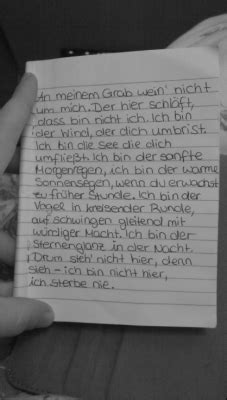 An meinem Grab wein' nicht
um mich. Der hier schläft,
dass bin nicht ich. Ich bin
der Wind, der dich umbrist.
Ich bin die See die dich
umfließt. Ich bin der sanfte
Morgenregen, ich bin der warme
Sonnensegen, wenn du erwachst
zu früher Stunde. Ich bin der
Vogel in kreisender Runde,
auf schwingen gleitend mit
würdiger Macht. Ich bin der
Sternenglanz in der Nacht.
Drum steh' nicht hier, denn
sieh - ich bin nicht hier,
ich sterbe nie.